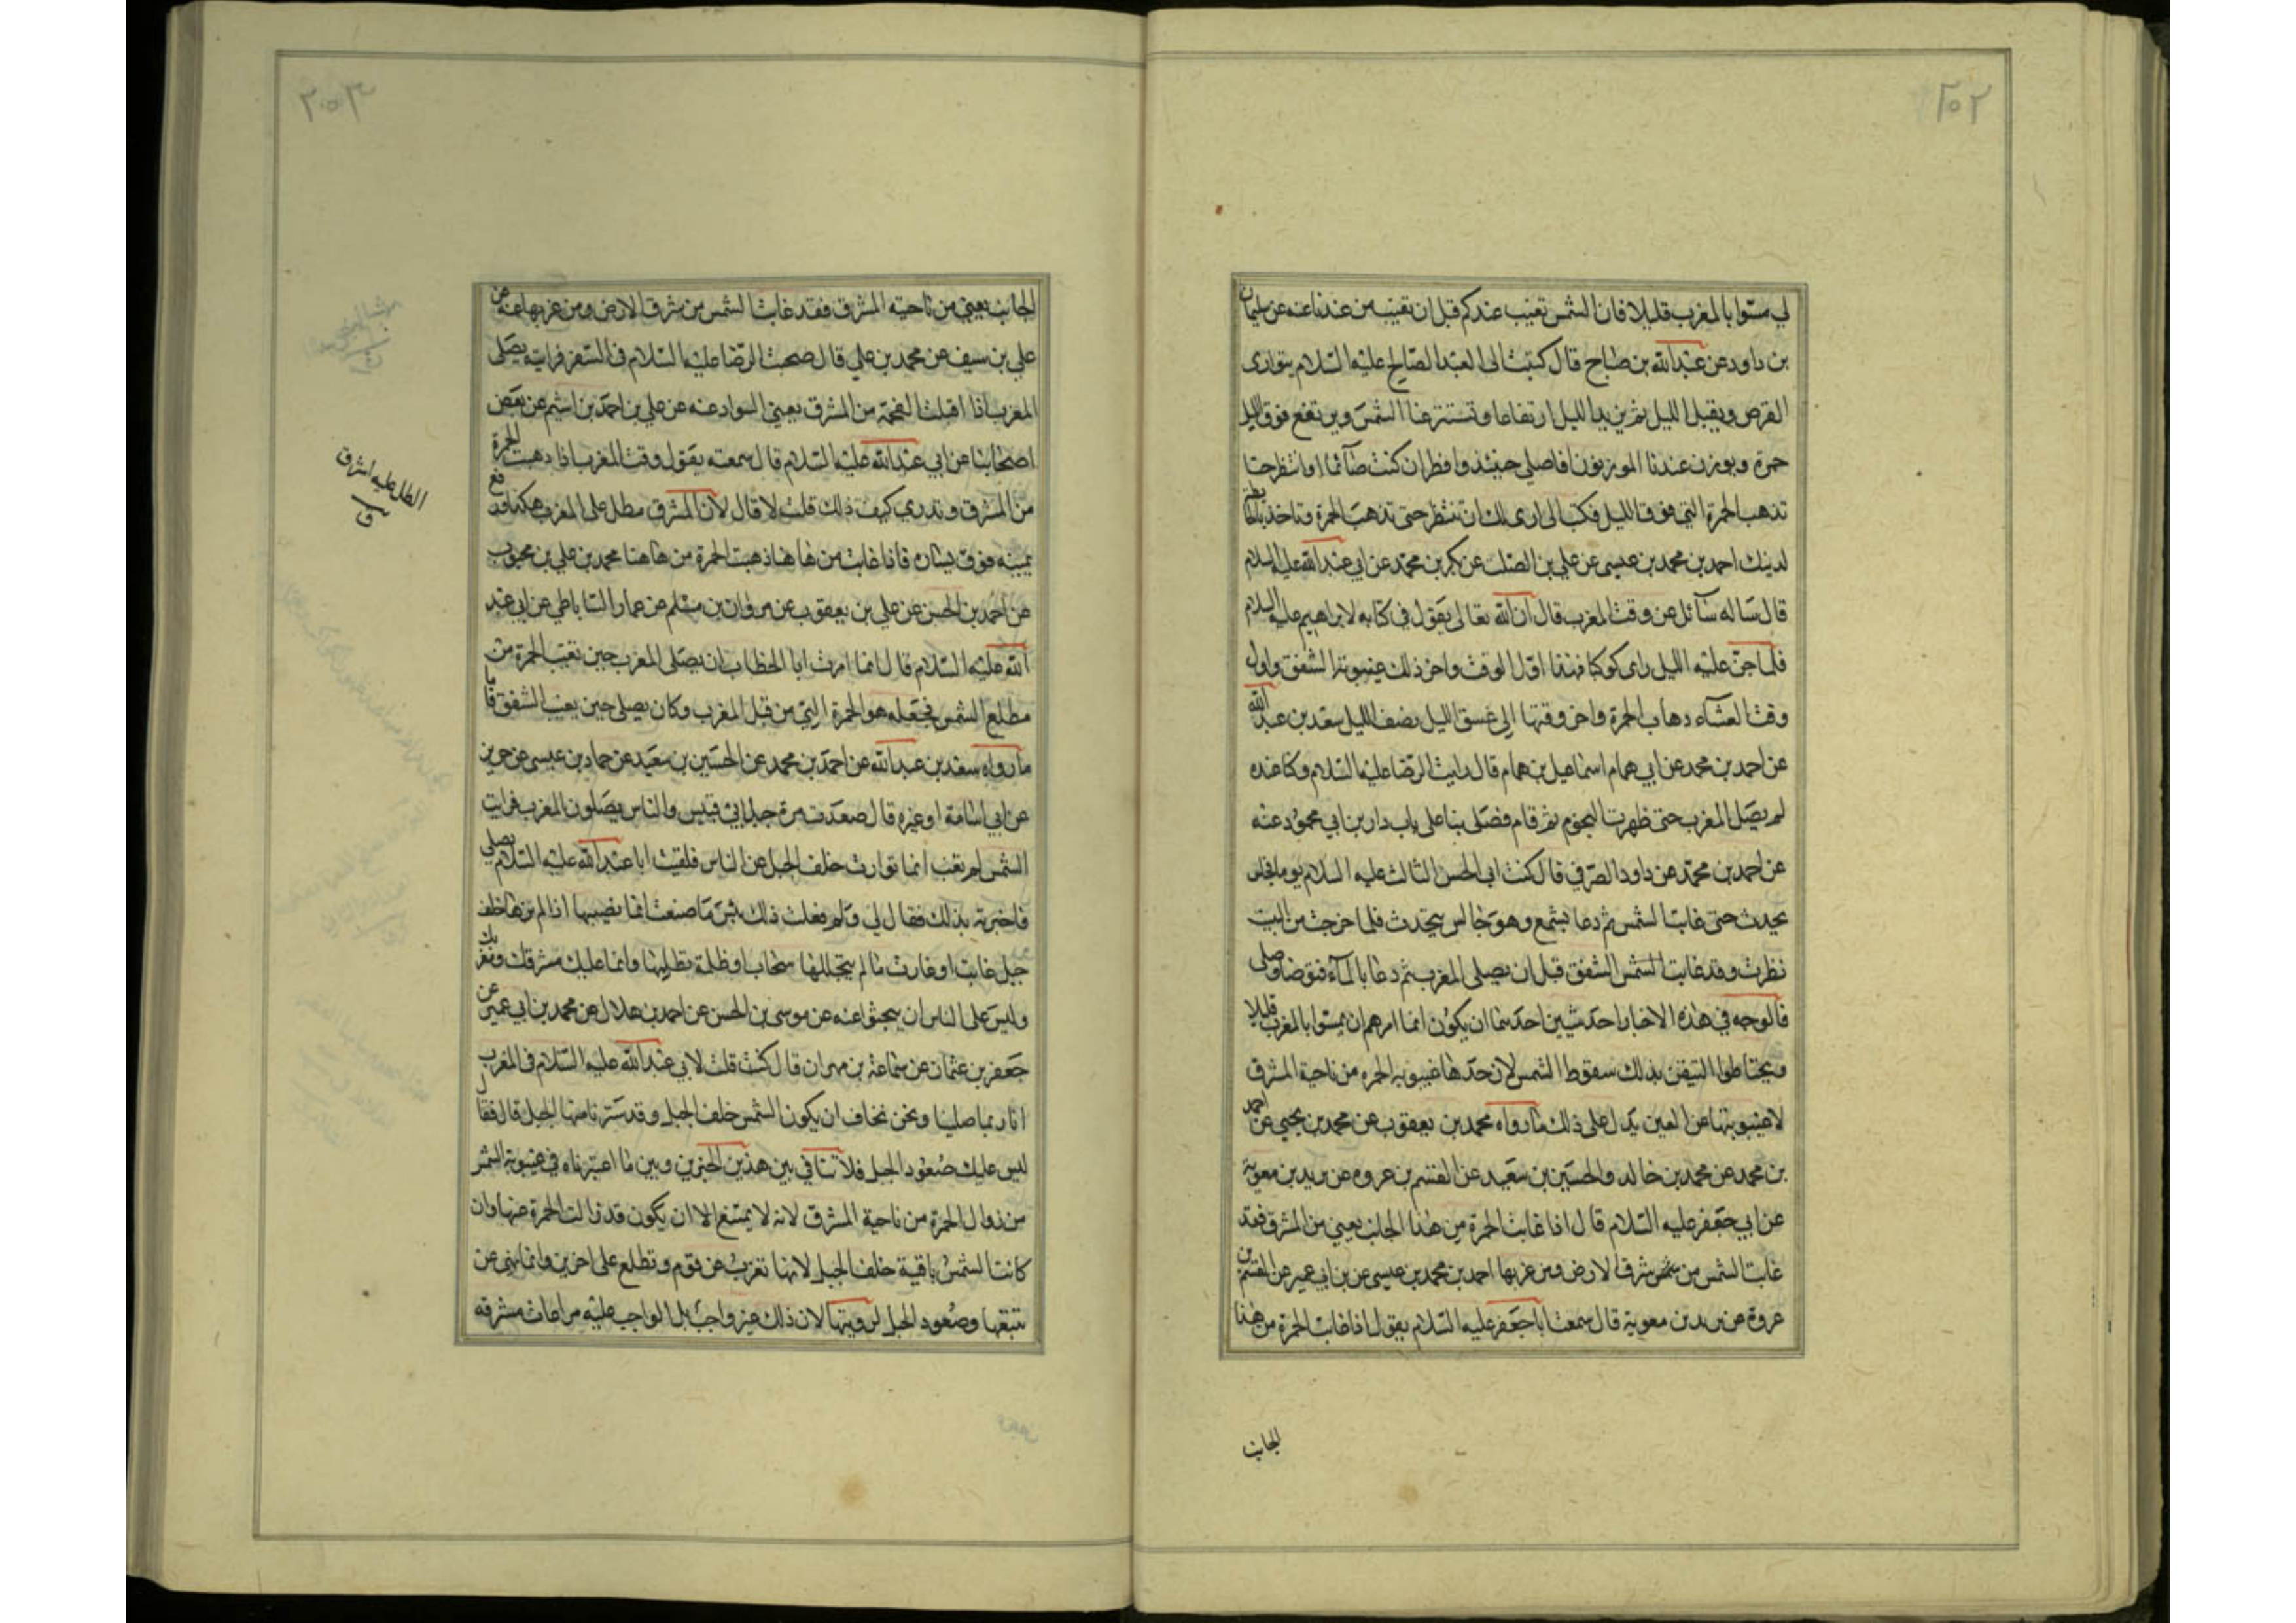 ٢٥٢
لي مسّوا بالمغرب قليلا فان الشمس تغيب عندكم قبل ان تغيب من عندنا عنه عن سليمان
بن داود عن عبد الله بن صباح قال كتبت الى العبد الصالح عليه السّلام يتوارى
القرص ويقبل الليل ثم يزيدنا الليل ارتفاعا وتستتر عنا الشمس ويرتفع فوق الليل
حمرة ويوزن عندنا الموزنون فاصلي حينئذ وافطر ان كنت صآئما او انتظر حتا
تذهب الحمرة التي فوق الليل فكتب الى ارى لك ان تنتظر حتى تذهب الحمرة وتاخذ بالحايطة
لدينك احمد بن محمد بن عيسى عن علي بن الصلت عن بكر بن محمد عن ابي عبد الله عليه السلام
قال ساله سآئل عن وقت المغرب قال ان الله تعالى يقول في كتابه لابراهيم عليه السلام
فلما جنّ عليه الليل راى كوكبا فهذا اوّل الوقت واخر ذلك غيبوبة الشفق واول
وقت العشآء ذهاب الحمرة واخر وقتها الى غسق الليل نصف الليل سعد بن عبد الله
عن احمد بن محمد عن ابي همام اسماعيل بن همام قال رايت الرّضا عليه السّلام وكنا عنده
لم يصلّ المغرب حتى ظهرت النجوم ثم قام فصلّى بنا على باب دار بن ابي محمود عنه
عن احمد بن محمّد عن داود الصرّفي قال كنت ابي الحسن الثالث عليه السلام يوما فجلس
يحدث حتى غابت الشمس ثم دعا بشمع وهو جالس يتحدث فلما خرجت من البيت
نظرت وقد غابت الشمس الشفق قبل ان يصلى المغرب ثم دعا بالمآء فتوضا وصلى
فالوجه في هذه الاخبار احد شيئين احدهما ان يكون انما امرهم ان يمسّوا بالمغرب قليلا
ويحتاطوا التيقن بذلك سقوط الشمس لان حدّها غيبوبة الحمره من ناحية المشرق
لا غيبوبتها عن العين يدل على ذلك ما رواه محمد بن يعقوب عن محمد بن يحيى عن احمد
بن محمد عن محمد بن خالد والحسين بن سعيد عن القسم بن عروه عن بريد بن معوية
عن ابي جعفر عليه السّلام قال اذا غابت الحمرة من هذا الجانب يعني من المشرق فقد
غابت الشمس من شرق الارض ومن غربها احمد بن محمد بن عيسى عن بن ابي عمير عن القسم بن
عروة عن بريد بن معوية قال سمعت ابا جعفر عليه السّلام يقول اذا غابت الحمرة من هذا
الجانب
٢٥٣
الجانب يعني من ناحيته المشرق فقد غابت الشمس من شرق الارض ومن غربها عنه عن
علي بن سيف عن محمد بن علي قال صحبت الرّضا عليه السّلام في السّفر فرايته يصلّى
المغرب اذا اقبلت الفحمة من المشرق يعني السواد عنه عن علي بن احمد بن اشيم عن بعض
اصحابنا عن ابي عبد الله عليه السّلام قال سمعته يقول وقت المغرب اذا ذهبت الحمرة
من المشرق وتدري كيف ذلك قلت لا قال لان المشرق مطل على المغرب هكذا ورفع
يمينه فوق يساره فاذا غابت من هاهنا ذهبت الحمرة من هاهنا محمد بن علي بن محبوب
عن احمد بن الحسن عن علي بن يعقوب عن مروان بن مسلم عن عمار الساباطي عن ابي عبد
الله عليه السّلام قال انما امرت ابا الخطاب ان يصلى المغرب حين تغيب الحمرة من
مطلع الشمس فجعله هو الحمرة التي من قبل المغرب وكان يصلي حين يغيب الشفق فاما
ما رواه سعد بن عبد الله عن احمد بن محمد عن الحسين بن سعيد عن حماد بن عيسى عن حريز
عن ابي اسامة او غيره قال صعدت مرة جبل ابي قبيس والناس يصلون المغرب فرايت
الشمس لم تغب انما توارت خلف الجبل عن الناس فلقيت ابا عبد الله عليه السّلام يصلي
فاخبرته بذلك فقال لي ولم فعلت ذلك بئس ما صنعت انما تصيبها اذا لم ترها خلف
جبل غابت او غارت ما لم يتجللها سحاب او ظلمة تظلها وانما عليك مشرقك ومغربك
وليس على الناس ان يبحثوا عنه عن موسى بن الحسن عن احمد بن هلال عن محمد بن ابي عمير عن
جعفر بن عثمان عن سماعة بن مهران قال كنت قلت لابي عبد الله عليه السّلام في المغرب
انا ربما صلينا ونحن نخاف ان يكون الشمس خلف الجبل وقد سترنا منها الجبل قال فقال
ليس عليك صعود الجبل فلا تنافي بين هذين الخبرين وبين ما اعتبرناه في غيبوبة الشمس
من زوال الحمرة من ناحية المشرق لانه لا يمتنع الا ان يكون قد زالت الحمرة عنها وان
كانت الشمس باقية خلف الجبل لانها تغرب عن قوم وتطلع على اخرين وانما نهى عن
تتبعها وصعود الجبل لرويتها لان ذلك غير واجب بل الواجب عليه مراعات مشرقه
اطل عليه اشرف
ق